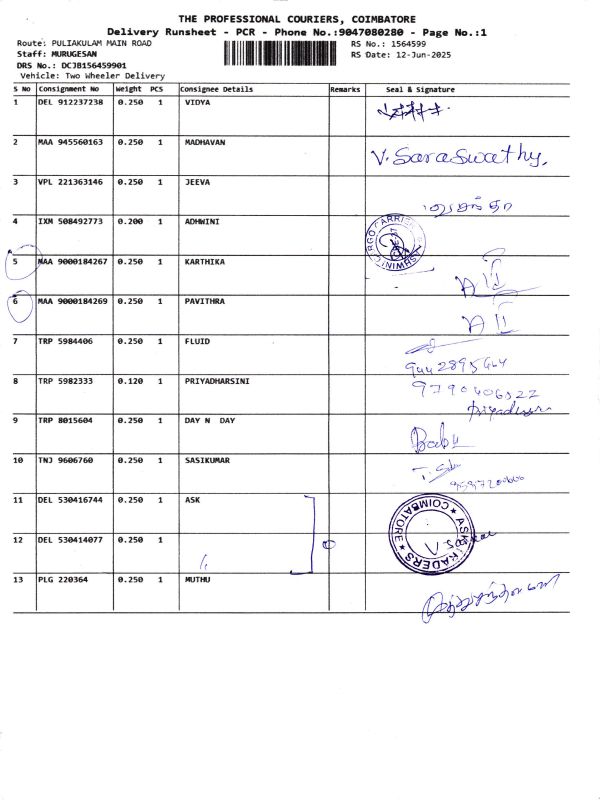 THE PROFESSIONAL COURIERS, COIMBATORE
Delivery Runsheet - PCR - Phone No.:9047080280 - Page No.:1
Route: PULIAKULAM MAIN ROAD RS No.: 1564599
Staff: MURUGESAN RS Date: 12-Jun-2025
DRS No.: DCJB156459901
Vehicle: Two Wheeler Delivery
S No Consignment No Weight PCS Consignee Details Remarks Seal & Signature
1 DEL 912237238 0.250 1 VIDYA
2 MAA 945560163 0.250 1 MADHAVAN V. Saraswathy.
3 VPL 221363146 0.250 1 JEEVA
4 IXM 508492773 0.200 1 ADHWINI
5 MAA 9000184267 0.250 1 KARTHIKA
6 MAA 9000184269 0.250 1 PAVITHRA
7 TRP 5984406 0.250 1 FLUID
9442895464
8 TRP 5982333 0.120 1 PRIYADHARSINI 9790406522
9 TRP 8015604 0.250 1 DAY N DAY Babu
10 TNJ 9606760 0.250 1 SASIKUMAR
11 DEL 530416744 0.250 1 ASK COIMBATORE
12 DEL 530414077 0.250 1
13 PLG 220364 0.250 1 MUTHU